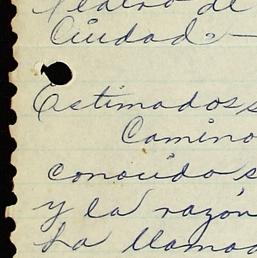 Teatro de
Ciudad.-
Estimados s
Camino
conocidos
y la razón
ha llamad